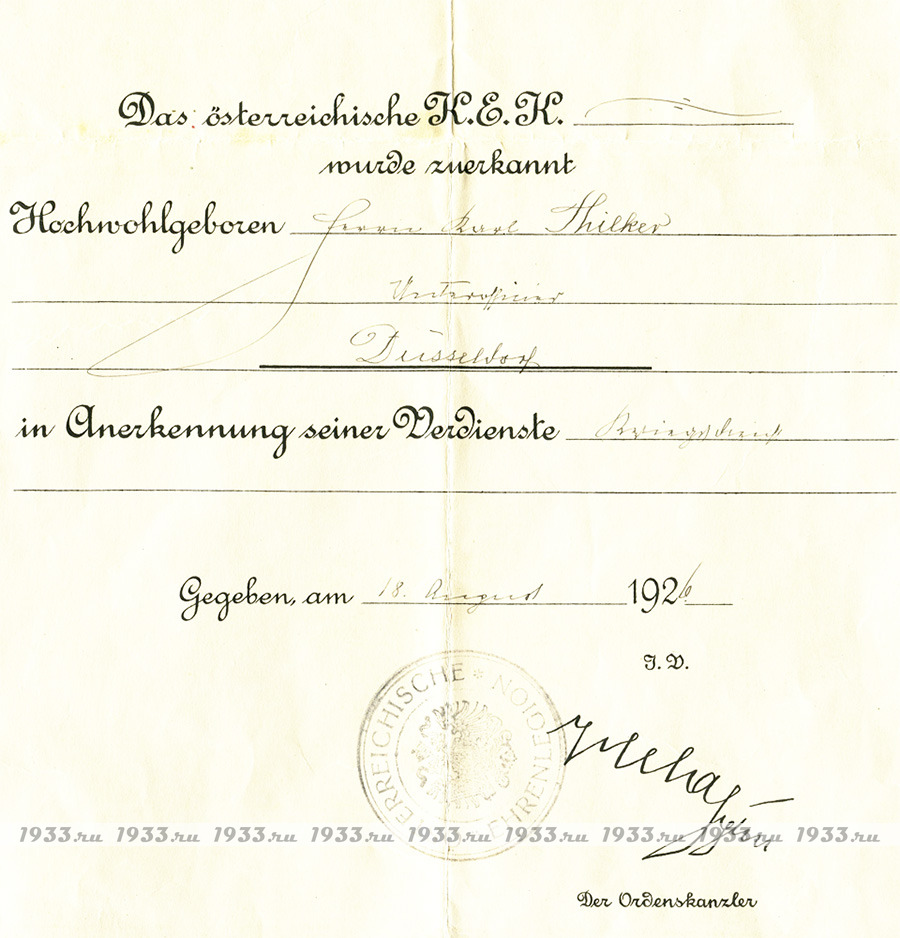 Das österreichische K.E.K.
wurde zuerkannt
Hochwohlgeboren Herrn Karl Thilker
Unteroffizier
Düsseldorf
in Anerkennung seiner Verdienste
Gegeben, am 18. August 1926
I.V.
ERREICHISCHE * EHRENLEGION
1933.ru 1933.ru 1933.ru 1933.ru 1933.ru 1933.ru 1933.ru 1933.ru 1933.ru
Der Ordenskanzler